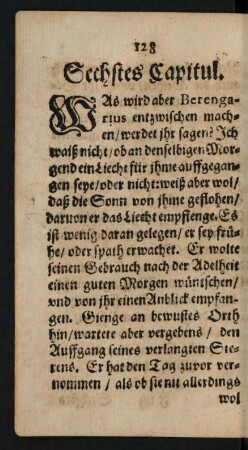 128
Sechstes Capitul.
WAs wird aber Berenga-
rius entzwischen mach-
en/ werdet jhr sagen? Ich
waiß nicht/ ob an denselbigen Mor-
gend ein Liecht für jhme auffgegan-
gen seye/ oder nicht: weiß aber wol/
daß die Sonn von jhme geflohen/
daruon er das Liecht empfienge. Es
ist wenig daran gelegen/ er sey frü-
he/ oder spath erwachet. Er wolte
seinen Gebrauch nach der Adelheit
einen guten Morgen wüntschen/
vnd von jhr einen Anblick empfan-
gen. Gienge an bewustes Orth
hin/ wartete aber vergebens/ den
Auffgang seines verlangten Ste-
rens. Er hat den Tag zuvor ver-
nommen/ als ob sie nit allerdings
wol